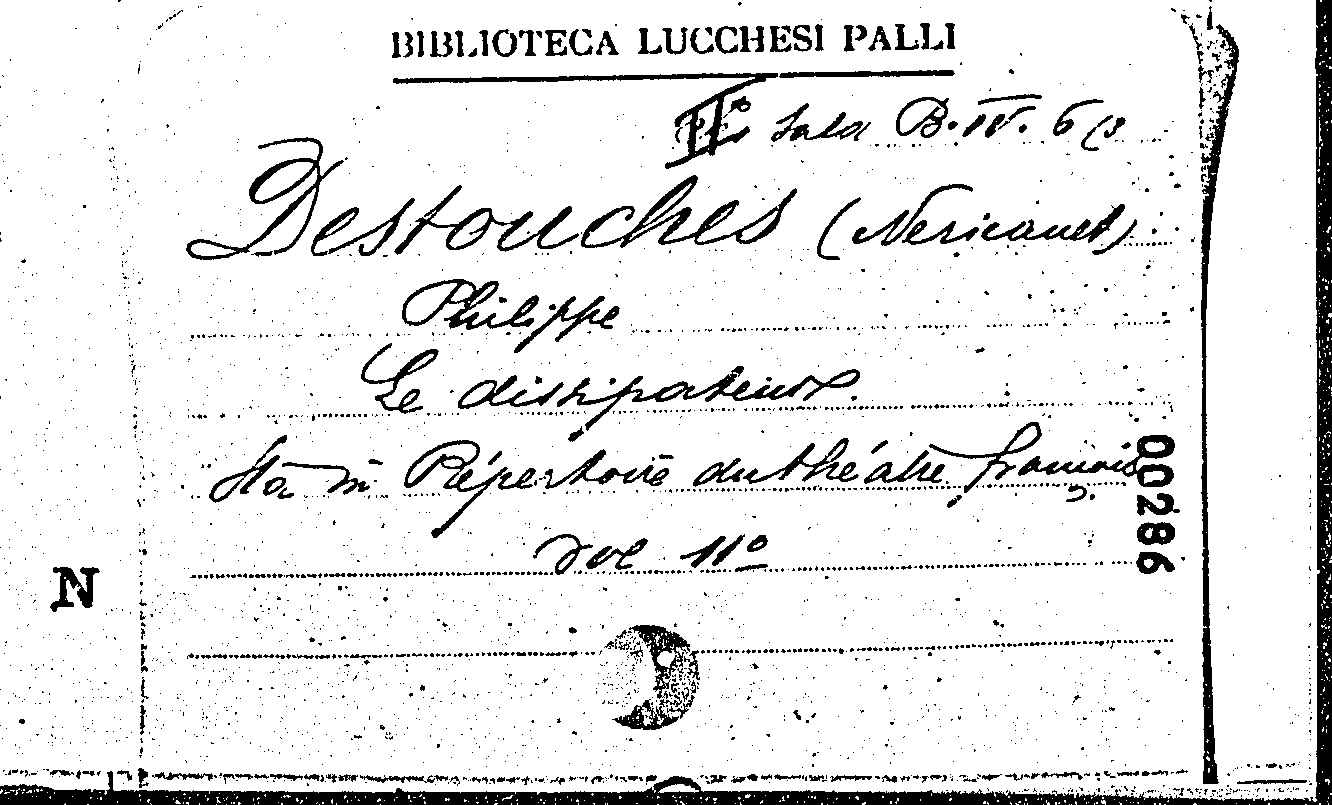 BIBLIOTECA LUCCHESI PALLI
IIº Sala B. IV. 6 (3
Destouches (Nericault)
Philippe
Le dissipateur.
Sta in Répertoire du théatre français
vol 11º
00286
N